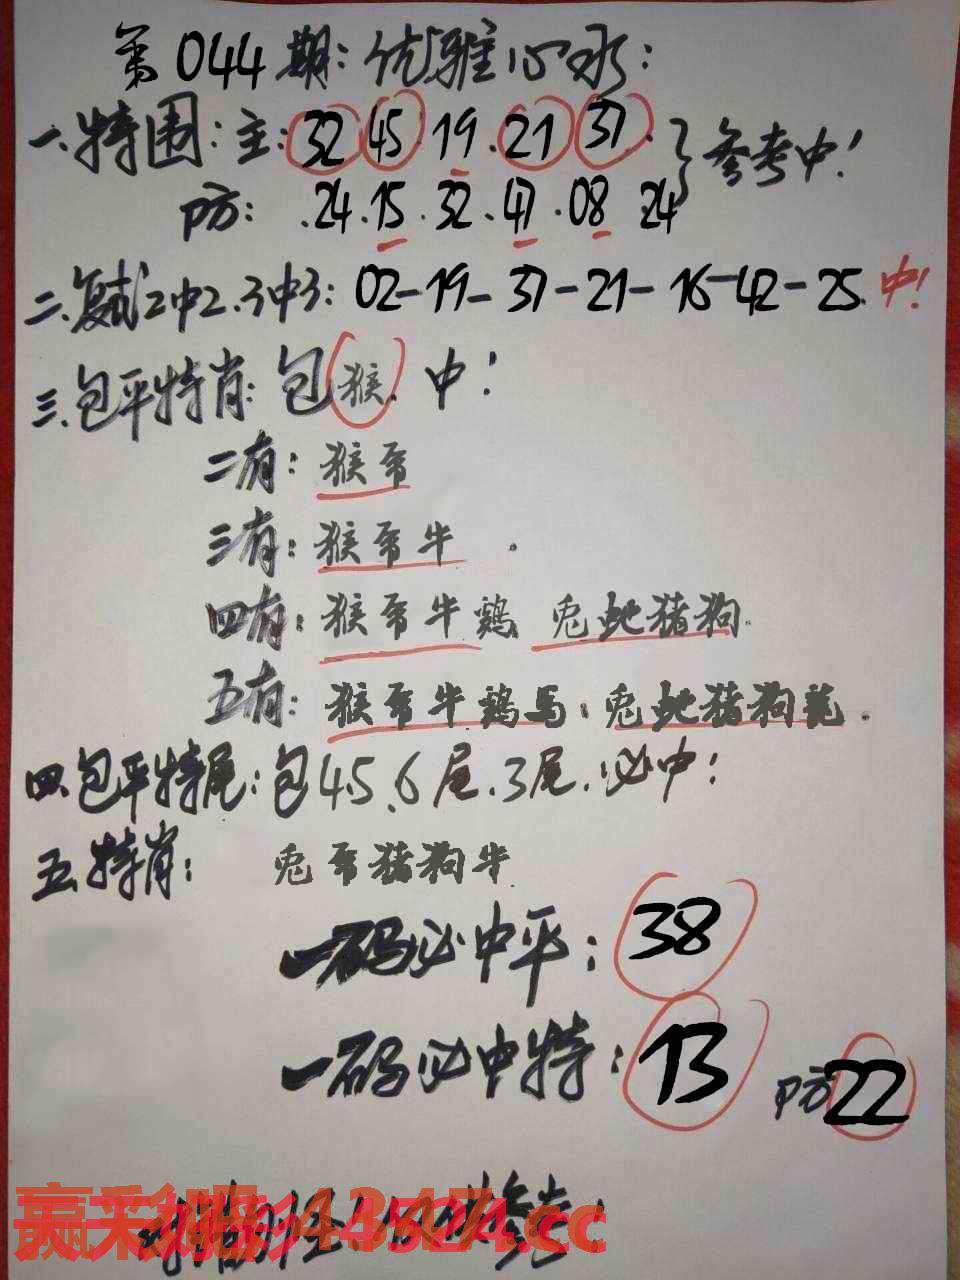 第044期：优雅心水：
一.特围：主：32 45.19.21 37.}参考中！
防：.24.15.32.47.08 24
二.复试2中2.3中3：02-19-37-21-16-42-25.中！
三.包平特肖：包猴.中！
二有：猴帝
三有：猴帝牛.
四有：猴帝牛鷄 兎虵猪狗.
五有：猴帝牛鷄馬：兎虵猪狗龍.
四.包平特尾：包4.5.6尾.3尾.必中！
五.特肖： 兎帝猪狗牛
一码必中平：38
一码必中特：13 防22